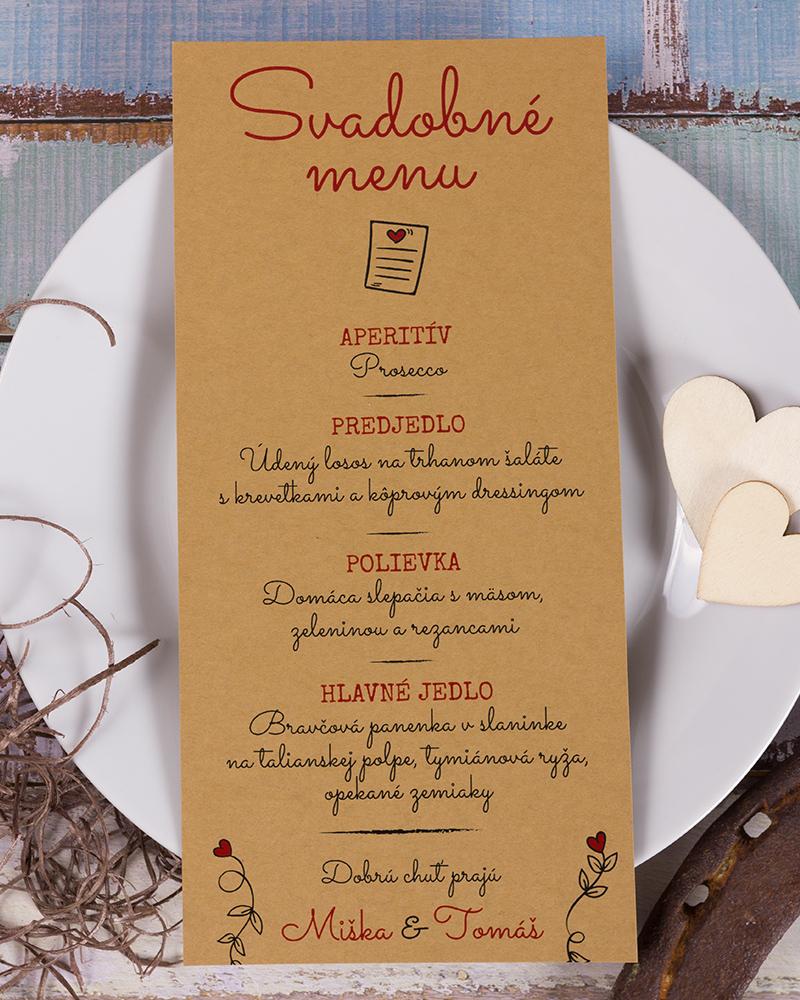 Svadobné
menu
APERITÍV
Prosecco
PREDJEDLO
Údený losos na trhanom šaláte
s krevetkami a kôprovým dressingom
POLIEVKA
Domáca slepačia s mäsom,
zeleninou a rezancami
HLAVNÉ JEDLO
Bravčová panenka v slaninke
na talianskej polpe, tymiánová ryža,
opekané zemiaky
Dobrú chuť prajú
Miška & Tomáš